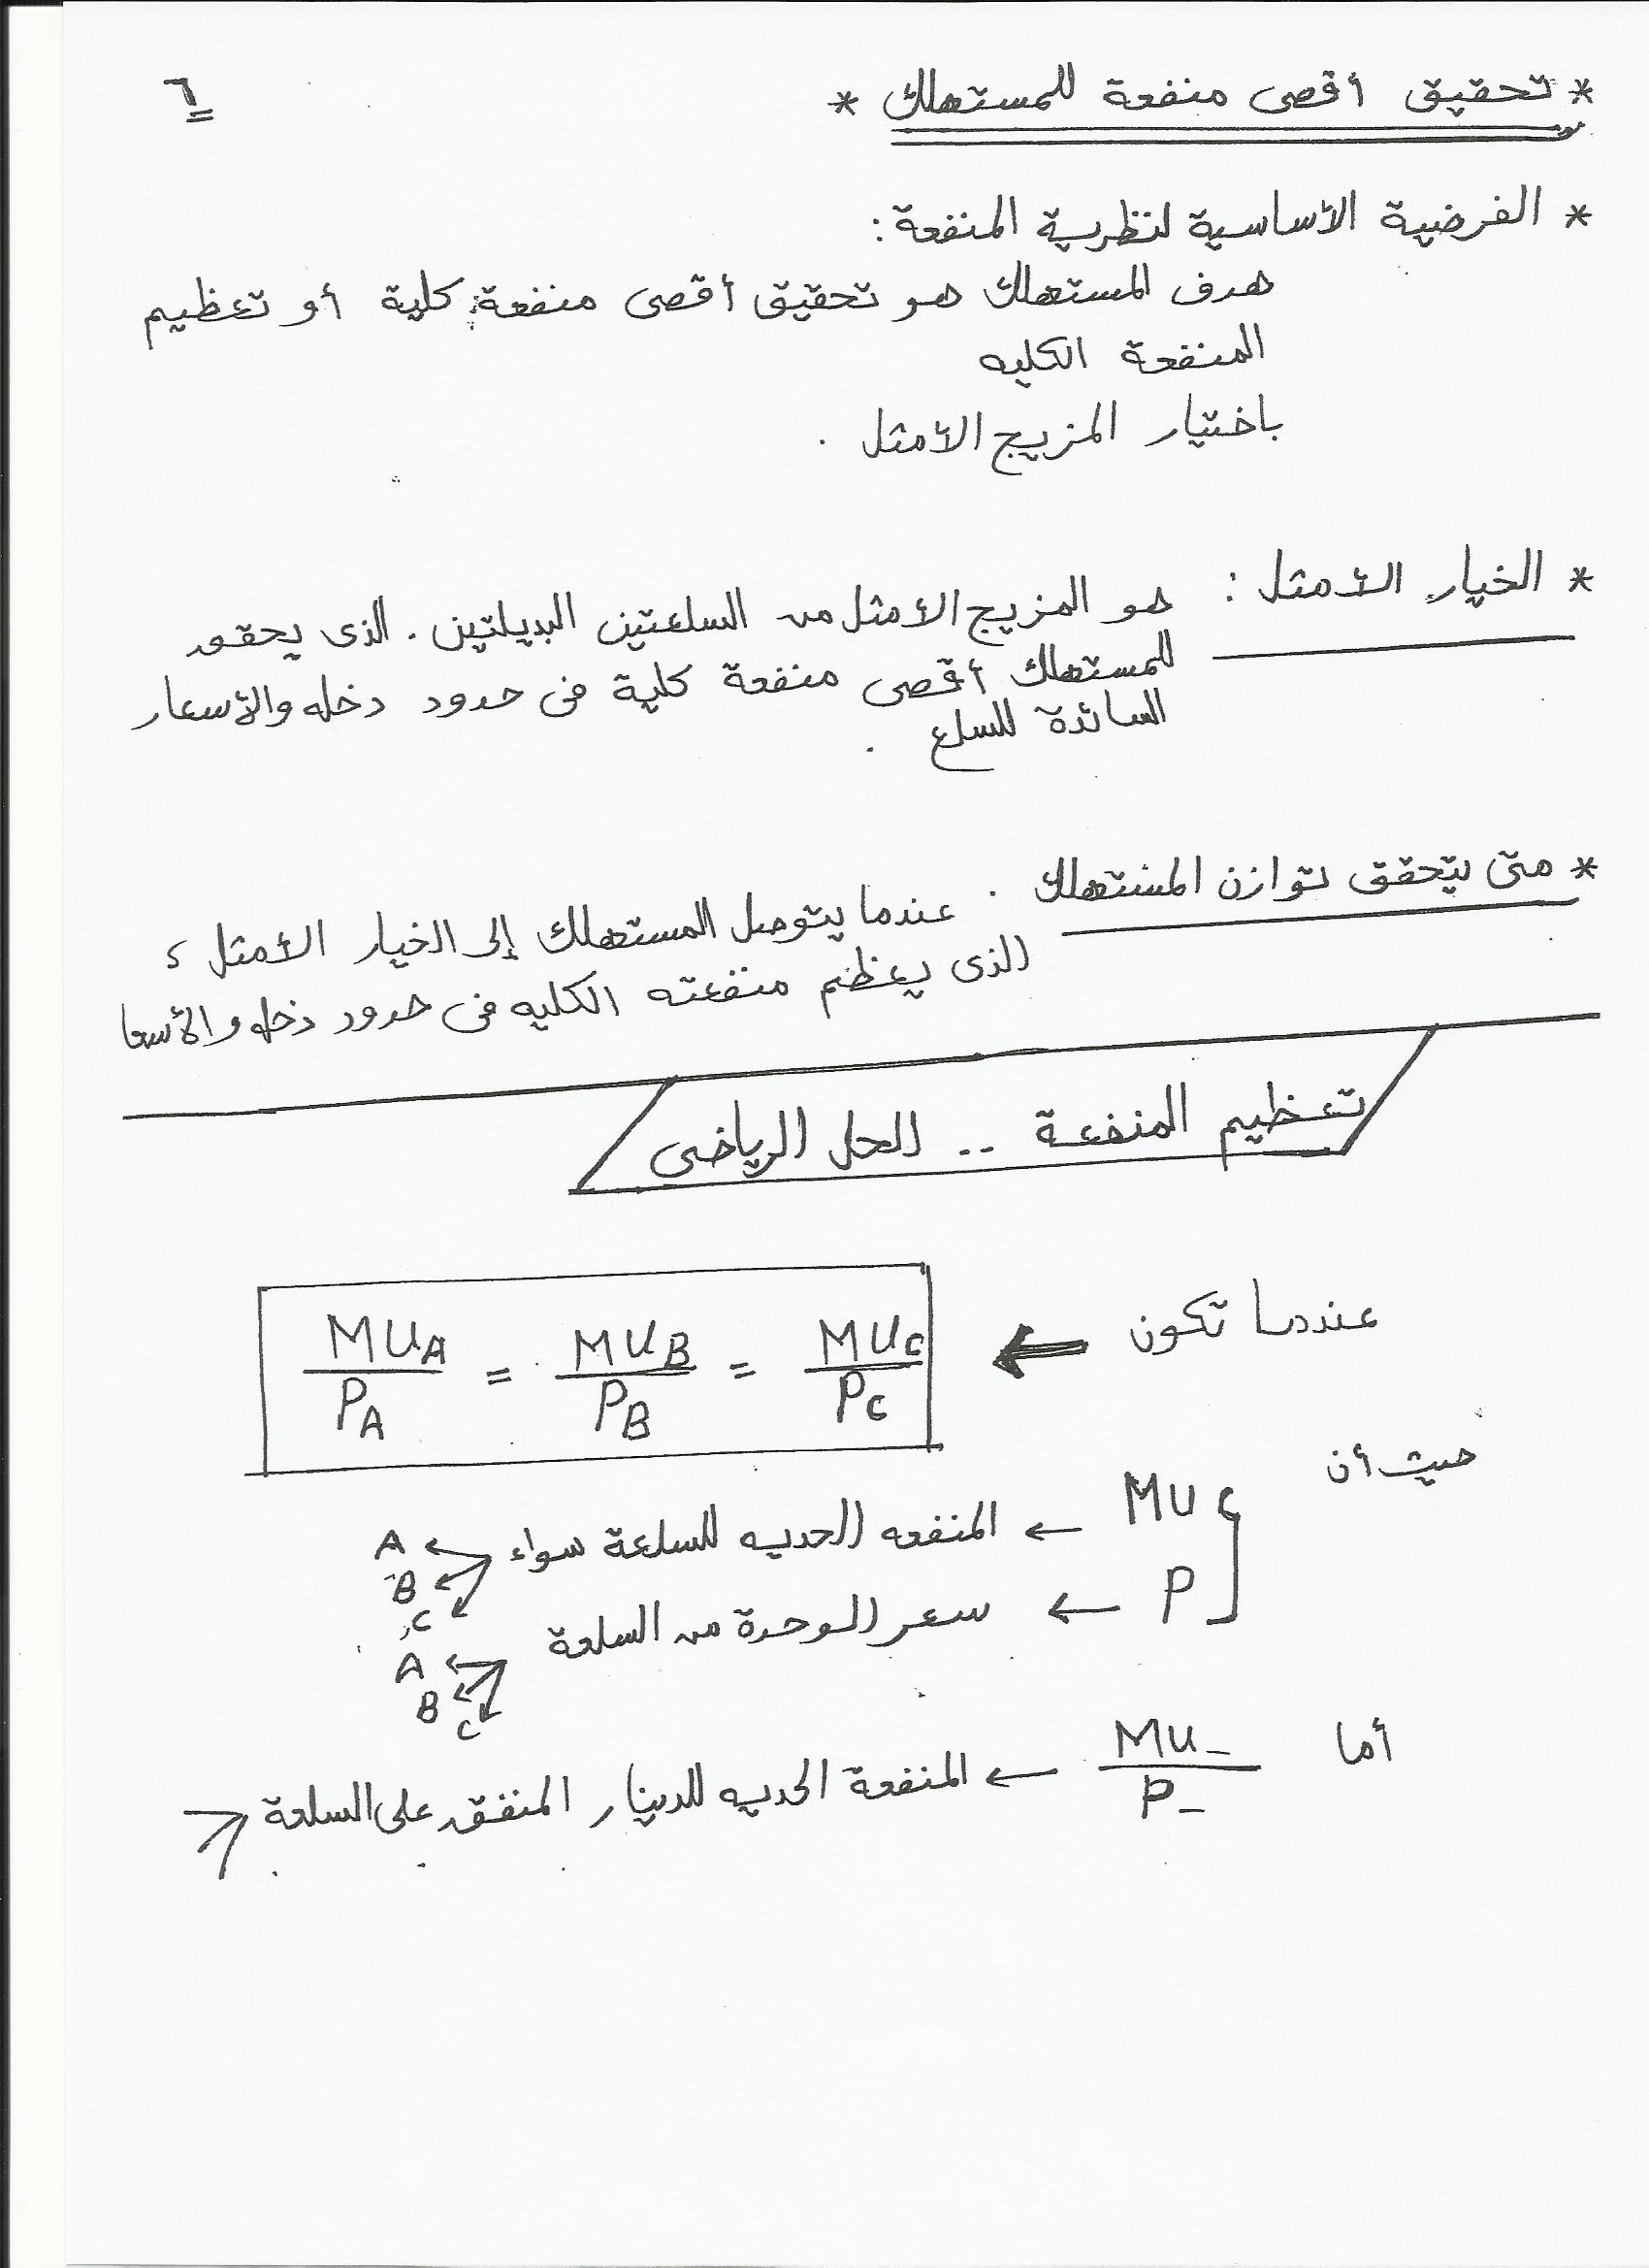 * تحقيق أقصى منفعة للمستهلك *
٦
* الفرضية الأساسية لنظرية المنفعة :
هدف المستهلك هو تحقيق أقصى منفعة كلية أو تعظيم
المنفعة الكليه
باختيار المزيج الأمثل .
* الخيار الأمثل : هو المزيج الأمثل من السلعتين البديلتين . الذى يحقق
للمستهلك أقصى منفعة كلية فى حدود دخله والأسعار
السائدة للسلع .
* متى يتحقق توازن المستهلك . عندما يتوصل المستهلك إلى الخيار الأمثل ،
الذى يعظم منفعته الكليه فى حدود دخله والأسعا
تعظيم المنفعة .. الحل الرياضى
عندما تكون ← MUA/PA = MUB/PB = MUC/PC
حيث أن
MU ← المنفعه الحديه للسلعة سواء A
B
C
P ← سعر الوحدة من السلعة A
B
C
أما MU_/P_ ← المنفعة الحديه للدينار المنفق على السلعة